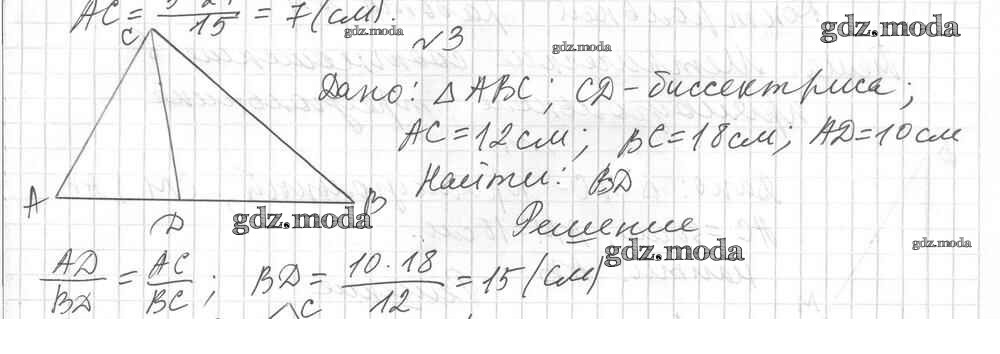 AC = 15 = 7 (см).
gdz.moda
gdz.moda
№3
gdz.moda
C
Дано: △ ABC; CD - биссектриса;
AC = 12 см; BC = 18 см; AD = 10 см
Найти: BD
A
D
B
gdz.moda
Решение
gdz.moda
gdz.moda
AD/BD = AC/BC; BD = 10·18/12 = 15 (см)
C